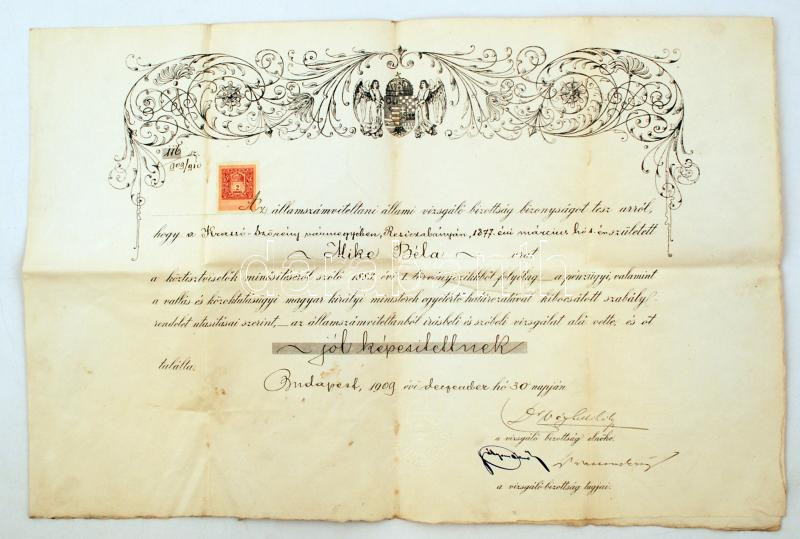 116 sz.
909/910
Az államszámviteltani állami vizsgáló bizottság bizonyságot tesz arról,
hogy a Krassó-Szörény vármegyében, Resiczabányán, 1877. évi március hó 1. én született
Mike Béla urat
a köztisztviselők minősítéséről szóló 1883. évi I. törvényczikkből folyólag a pénzügyi, valamint
a vallás és közoktatásügyi magyar királyi ministerek egyetértő határozatával kibocsátott szabály-
rendelet utasításai szerint, az államszámviteltanból írásbeli és szóbeli vizsgálat alá vette, és őt
jól képesítettnek
találta.
Budapest, 1909 évi deczember hó 30 napján
a vizsgáló bizottság elnöke.
a vizsgáló-bizottság tagjai.